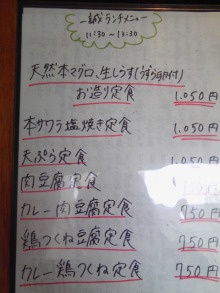 一誠ランチメニュー
11:30〜13:30
天然本マグロ、生しらす(うずら卵付)
お造り定食 1,050円
本サワラ塩焼き定食 1,050円
天ぷら定食 1,050円
肉豆腐定食
カレー肉豆腐定食 750円
鶏つくね豆腐定食 750円
カレー鶏つくね定食 750円